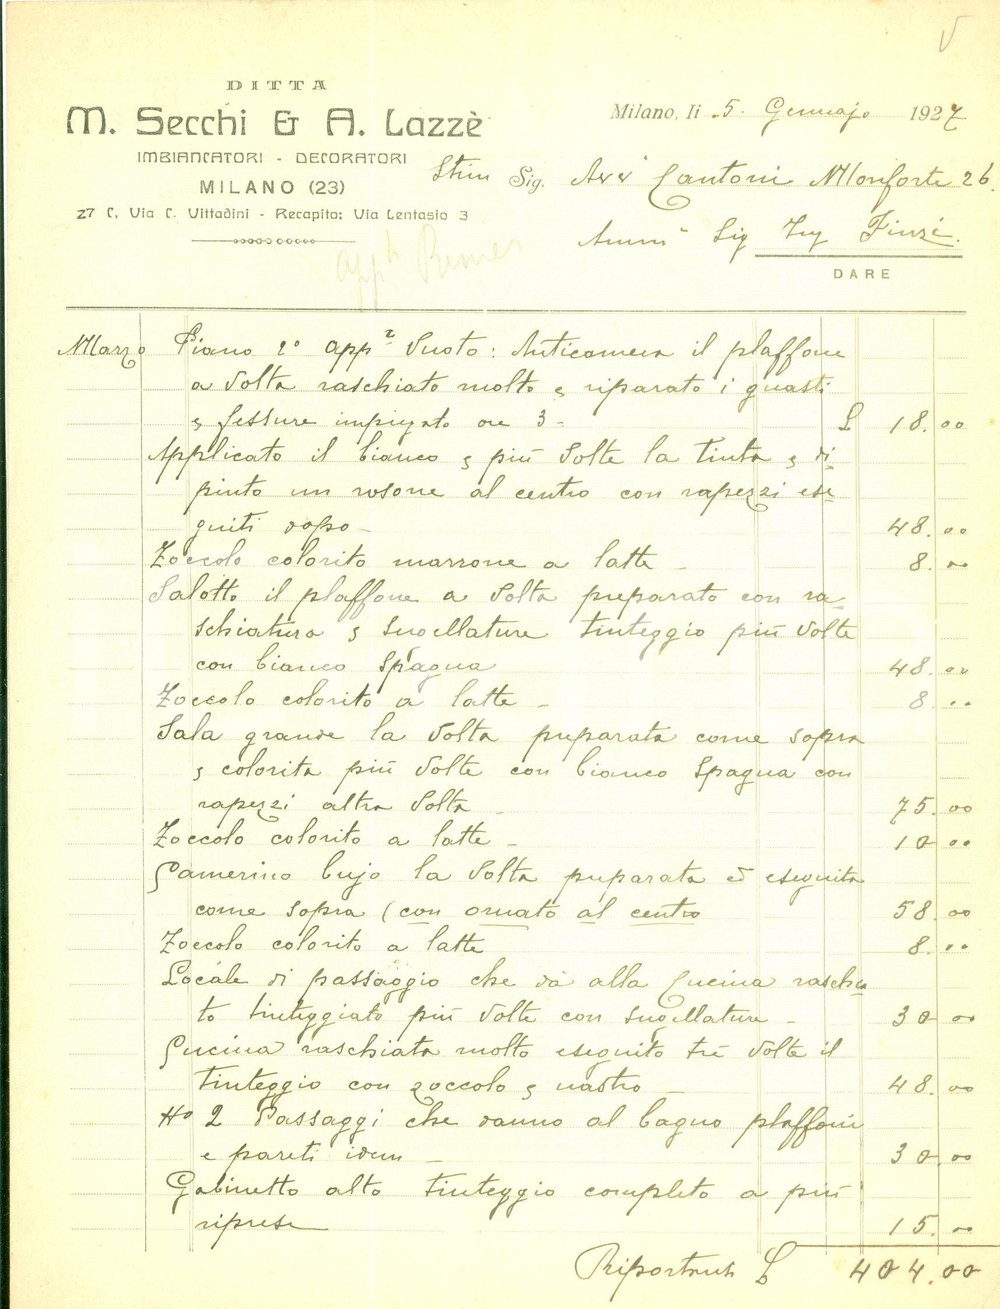 DITTA
M. Secchi & A. Lazzè
IMBIANCATORI - DECORATORI
MILANO (23)
27 C, Via C. Vittadini - Recapito: Via Lentasio 3
Milano, li 5 Gennajo 1927
Stim Sig. Avv Cantoni Monforte 26.
Amm Sig Ing Finzi.
DARE
Marzo Piano 2º app Vuoto: Anticamera il plaffone
a volta raschiato molto e riparato i guasti
e fessure impiegato ore 3 - L 18.00
Applicato il bianco e più volte la tinta e di
pinto un rosone al centro con rapezzi ese
guiti dopo - 48.00
Zoccolo colorito marrone a latte - 8.00
Salotto il plaffone a volta preparato con ra
schiatura e stuccellature tinteggio più volte
con bianco Spagna 48.00
Zoccolo colorito a latte - 8.00
Sala grande la volta preparata come sopra
e colorita più volte con bianco Spagna con
rapezzi altra volta 75.00
Zoccolo colorito a latte - 10.00
Camerino bujo la volta preparata ed eseguita
come sopra (con ornato al centro 58.00
Zoccolo colorito a latte 8.00
Locale di passaggio che dà alla Cucina raschia
to tinteggiato più volte con stuccellature - 30.00
Cucina raschiata molto eseguito tre volte il
tinteggio con zoccolo e nastro - 48.00
Nº 2 Passaggi che danno al bagno plaffoni
e pareti idem - 30.00
Gabinetto alto tinteggio completo a più
riprese 15.00
Riportansi L 404.00